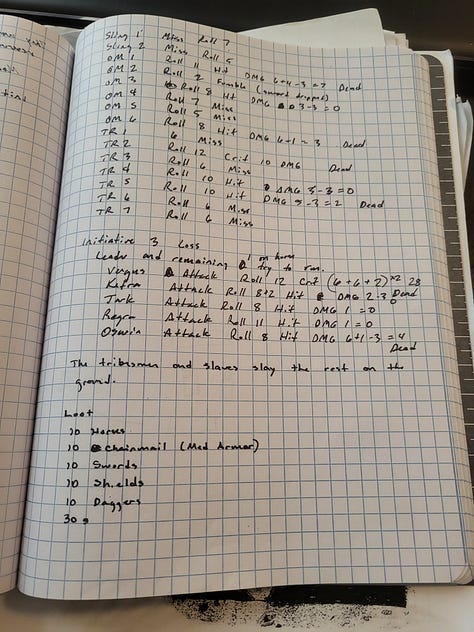 Sling 1 Miss Roll 7
Sling 2 Miss Roll 5
OM 1 Roll 11 Hit DMG 6+4-3=7 Dead
OM 2 Roll 2 Fumble (sword dropped)
OM 3 Roll 8 Hit DMG 3-3=0
OM 4 Roll 7 Miss
OM 5 Roll 5 Miss
OM 6 Roll 8 Hit DMG 6+1-3 Dead
TR 1 6 Miss
TR 2 Roll 12 Crit 10 DMG Dead
TR 3 Roll 6 Miss
TR 4 Roll 10 Hit DMG 3-3=0
TR 5 Roll 10 Hit DMG 5-3=2 Dead
TR 6 Roll 6 Miss
TR 7 Roll 6 Miss
Initiative 3 Loss
Leader and remaining 1 on horse try to run.
Attack Roll 12 Crit (6+6+2)x2 28
Attack Roll 8+2 Hit DMG 2-3 Dead
0
Attack Roll 8 Hit DMG 1=0
Attack Roll 11 Hit DMG 1=0
Oswin Attack Roll 8 Hit DMG 6+1-3=4
Dead
The tribesmen and slaves slay the rest on the
ground.
Loot
10 Horses
10 Chainmail (Med Armor)
10 Swords
10 Shields
10 Daggers
30 g